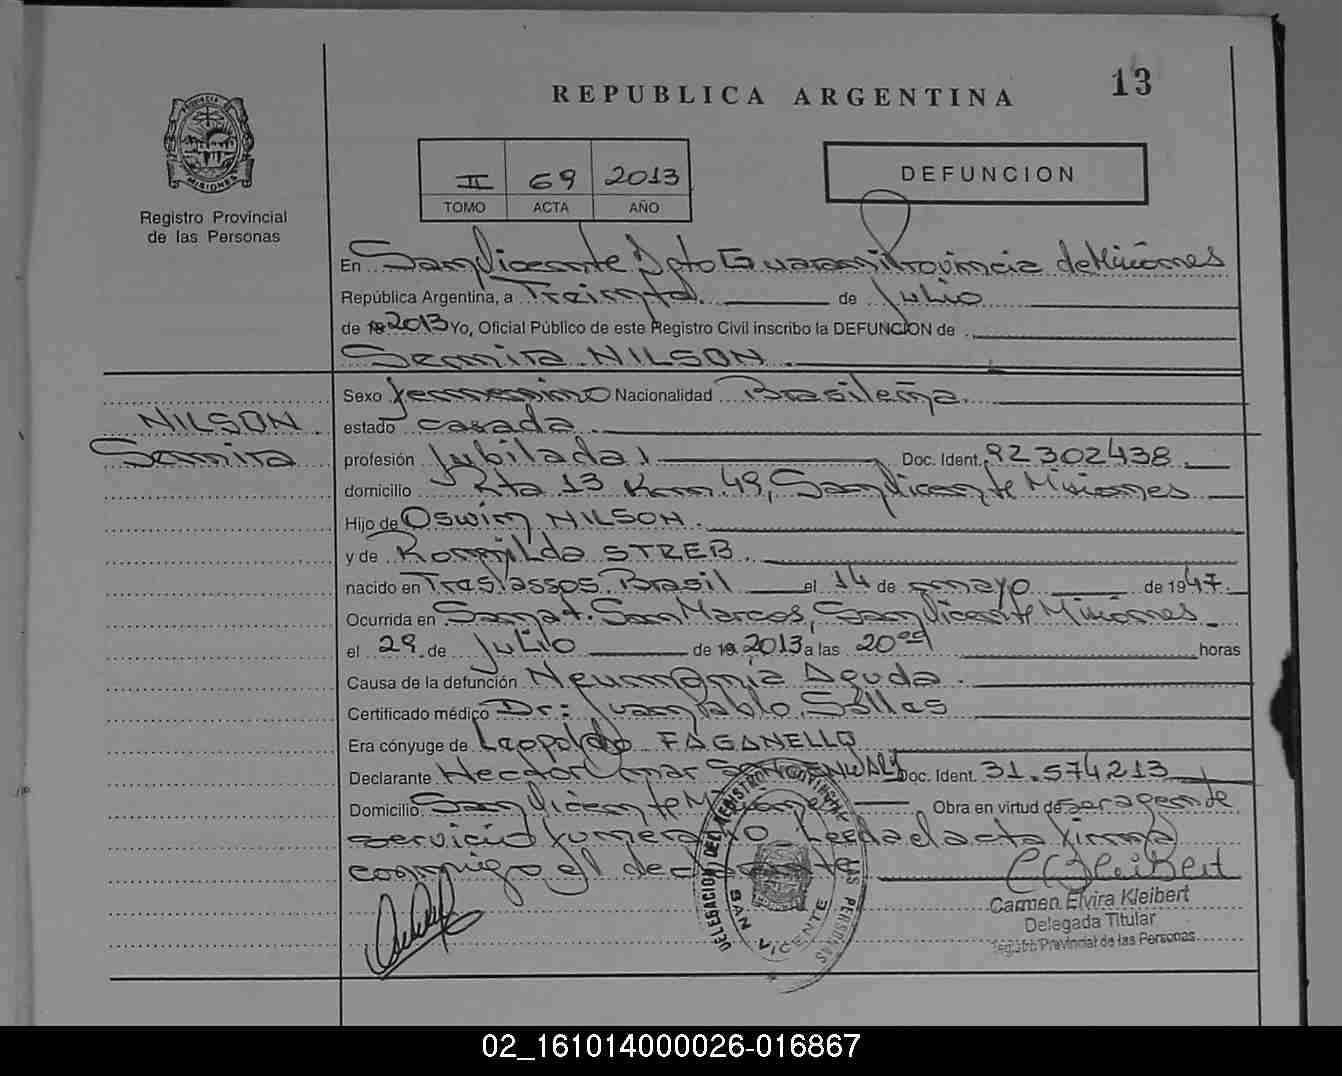 13
REPUBLICA ARGENTINA
PROVINCIA DE
MISIONES
Registro Provincial
de las Personas
II 69 2013
TOMO ACTA AÑO
DEFUNCION
En San Vicente Dpto Guarani Provincia de Misiones
República Argentina, a Treinta de Julio
de 19 2013 Yo, Oficial Público de este Registro Civil inscribo la DEFUNCION de
Semira NILSON.
NILSON
Semira
Sexo femenino Nacionalidad Brasileña.
estado casada.
profesión Jubilada, Doc. Ident. 92302438.
domicilio Rta 13 Km. 49, San Vicente Misiones
Hijo de Oswin NILSON.
y de Romilda STREB.
nacido en Tres Passos Brasil el 14 de mayo de 1947.
Ocurrida en Sanat. San Marcos, San Vicente Misiones
el 29 de Julio de 19 2013 a las 20 horas
Causa de la defunción Neumonia Aguda.
Certificado médico Dr: Juan Pablo Sallas
Era cónyuge de Leopoldo FAGANELLO
Declarante Hector Omar Doc. Ident. 31.574213
Domicilio San Vicente Misiones Obra en virtud de ser agente
servicio funerario Leeda el acta firma
conmigo el declarante
CBKleibert
Carmen Elvira Kleibert
Delegada Titular
Registro Provincial de las Personas
DELEGACION DEL REGISTRO PROVINCIAL DE LAS PERSONAS
SAN VICENTE
02_161014000026-016867